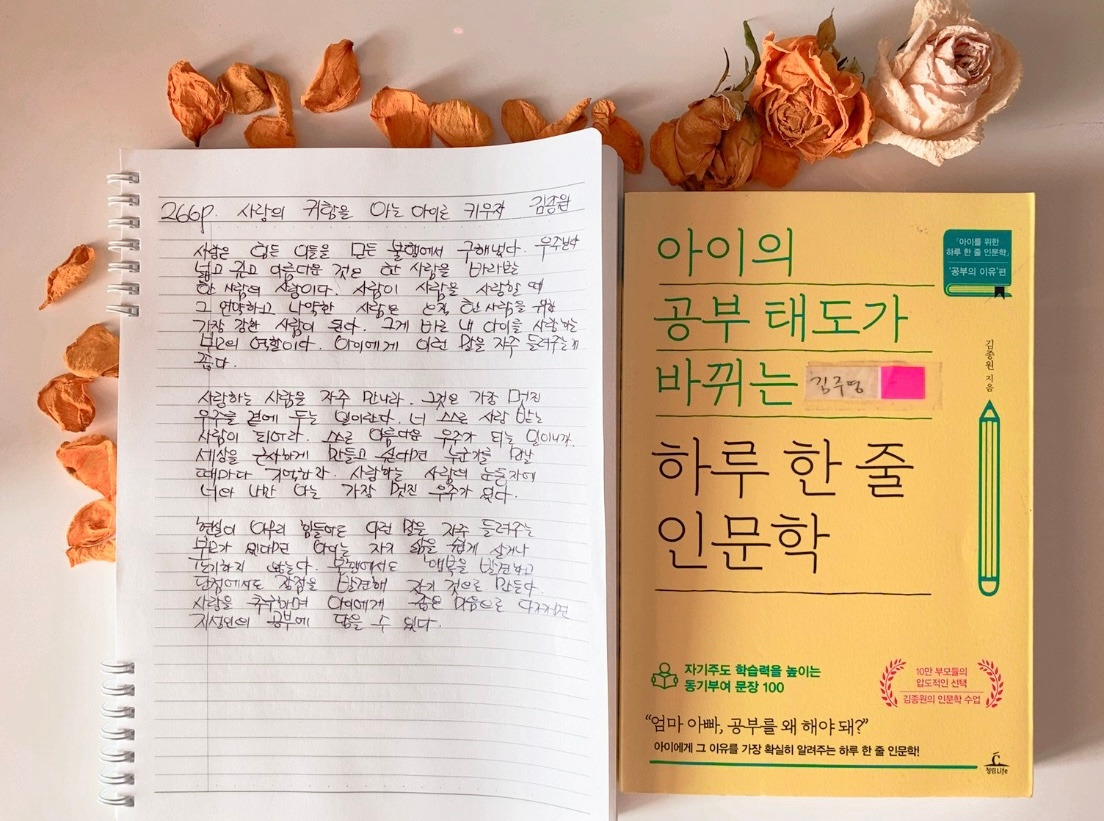 266p. 사랑의 귀함을 아는 아이로 키우자 김종원
사랑은 힘든 이들을 모든 불행에서 구해냈다. 우주보다
넓고 깊고 아름다운 것은 한 사람을 바라보는
한 사람의 사랑이다. 사람이 사람을 사랑할 때
그 연약하고 나약한 사람은 오직 한 사람을 위해
가장 강한 사람이 된다. 그게 바로 내 아이를 사랑하는
부모의 역할이다. 아이에게 이런 말을 자주 들려주는게
좋다.
사랑하는 사람을 자주 만나라. 그것은 가장 멋진
우주를 곁에 두는 일이란다. 너 스스로 사랑 받는
사람이 되어라. 스스로 아름다운 우주가 되는 일이니까.
세상을 근사하게 만들고 싶다면 누군가를 만날
때마다 기억하라. 사랑하는 사람의 눈동자에
너와 나만 아는 가장 멋진 우주가 있다.
현실이 아무리 힘들어도 이런 말을 자주 들려주는
부모가 있다면 아이는 자기 삶을 쉽게 살거나
포기하지 않는다. 불행에서도 행복을 발견하고
단점에서도 장점을 발견해 자기 것으로 만든다.
사랑을 추구하며 아이에게 좋은 마음으로 다가가면
지성인의 공부에 닿을 수 있다.
아이의
공부 태도가
바뀌는
김주영
하루 한 줄
인문학
「아이를 위한
하루 한 줄 인문학」
'공부의 이유'편
김종원 지음
자기주도 학습력을 높이는
동기부여 문장 100
10만 부모들의
압도적인 선택
김종원의 인문학 수업
“엄마 아빠, 공부를 왜 해야 돼?”
아이에게 그 이유를 가장 확실히 알려주는 하루 한 줄 인문학!
청림Life